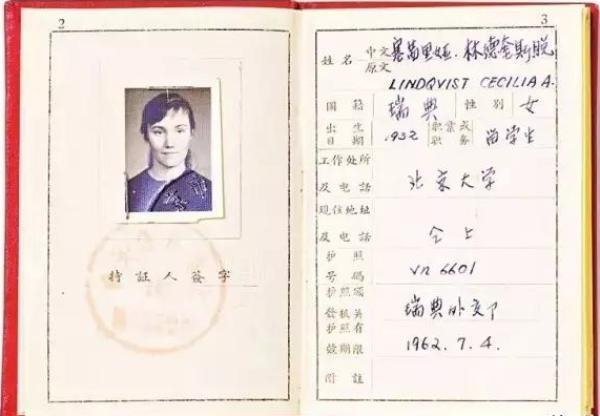 2
持証人簽字
3
姓名 中文 塞茜里娅·林德奎斯脱
原文 LINDQVIST CECILIA A.
国籍 瑞典 性別 女
出生日期 1932 职業或职务 留学生
工作处所及电話 北京大学
現住地址及电話 仝上
护照号碼 VR 6601
护照頒發机关 瑞典外交部
护照有效期限 1962.7.4.
附註